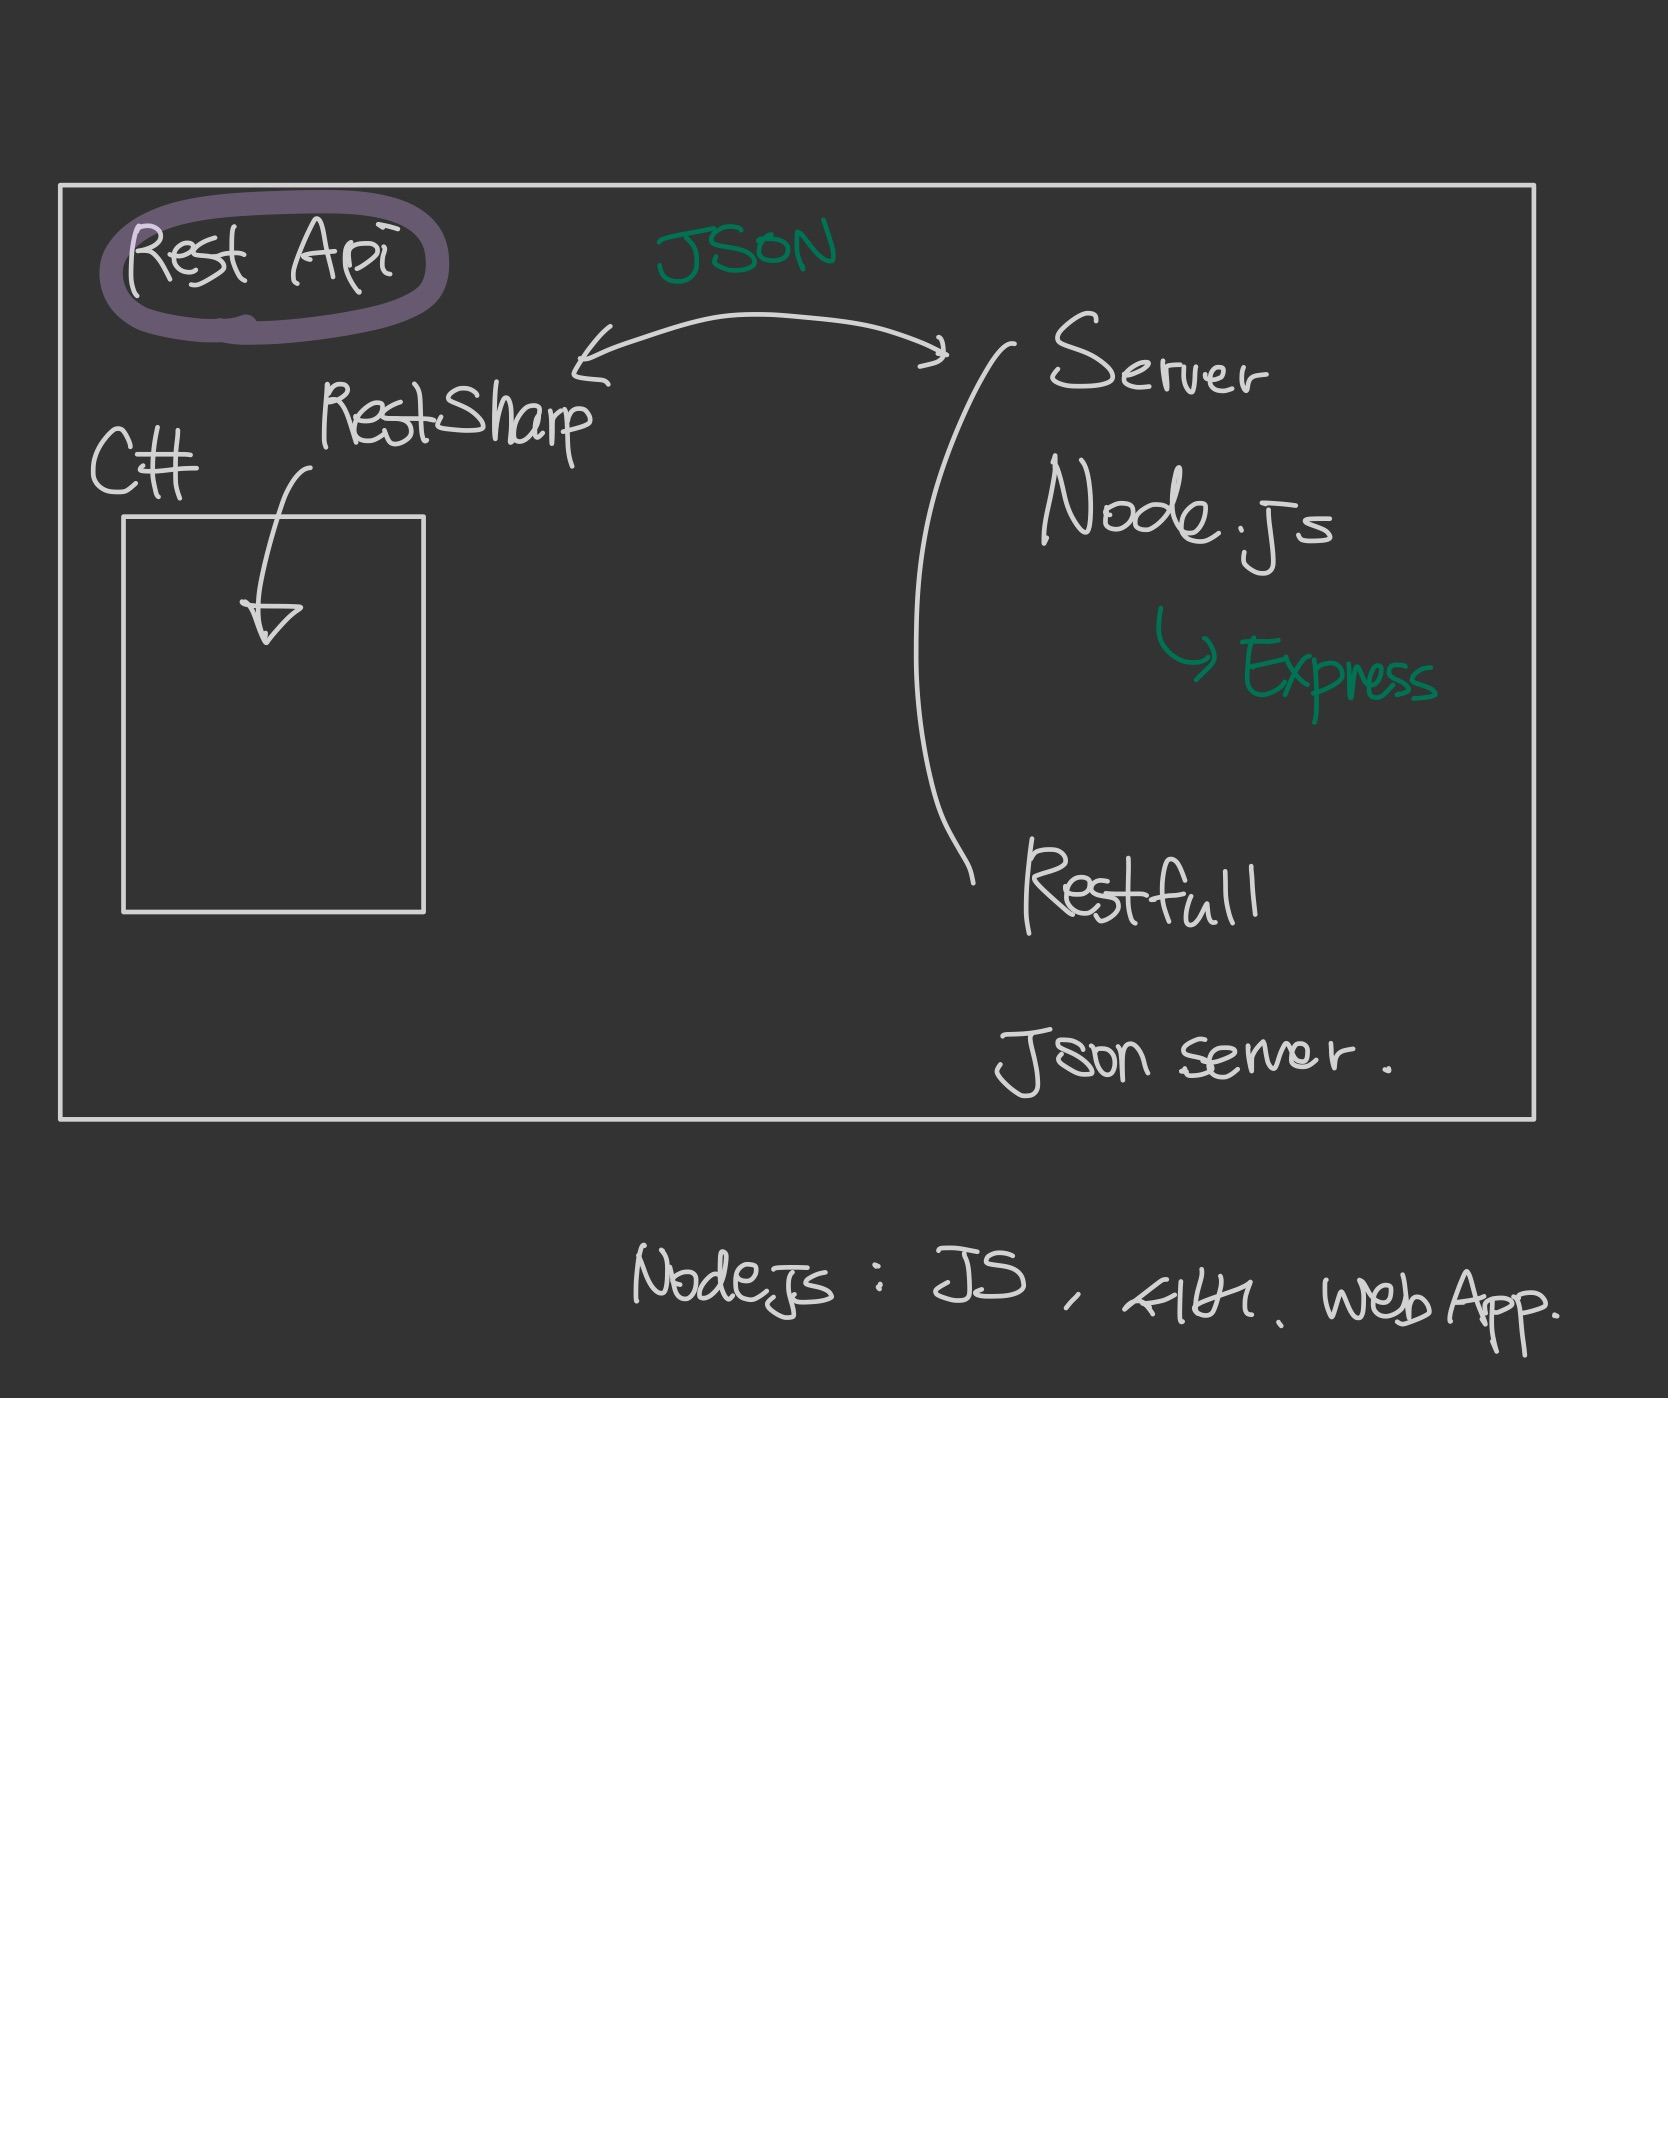 Rest Api
JSON
Server
RestSharp
C#
Node.js
Express
Restfull
Json server.
Nodejs : JS, 서버. Web App.